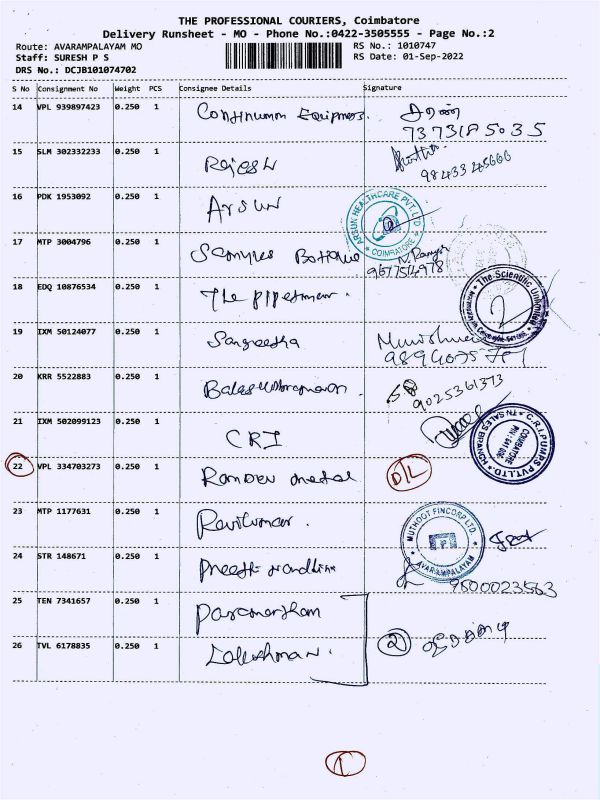 THE PROFESSIONAL COURIERS, Coimbatore
Delivery Runsheet - MO - Phone No.:0422-3505555 - Page No.:2
Route: AVARAMPALAYAM MO
RS No.: 1010747
Staff: SURESH P S
RS Date: 01-Sep-2022
DRS No.: DCJB101074702
S No Consignment No Weight PCS Consignee Details Signature
14 VPL 939897423 0.250 1 Continuum Equipment.
7373185035
15 SLM 302332233 0.250 1 Rajesh
98433 45666
16 PDK 1953092 0.250 1 Arsun
ARSUN HEALTHCARE PVT LTD
COIMBATORE
17 MTP 3004796 0.250 1
9677514978
18 EDQ 10876534 0.250 1 The pipetman.
The Scientific
19 IXM 50124077 0.250 1 Sangeetha
20 KRR 5522883 0.250 1 Balasubramaniam
9025361373
21 IXM 502099123 0.250 1 CRI
C.R.I. PUMPS PVT. LTD
COIMBATORE
22 VPL 334703273 0.250 1 Ramdev metal D/L
23 MTP 1177631 0.250 1 Ravikumar.
MUTHOOT FINCORP LTD
AVARAMPALAYAM
24 STR 148671 0.250 1 Preethi nandhini
9600023563
25 TEN 7341657 0.250 1
26 TVL 6178835 0.250 1 Lakshman.
2
1